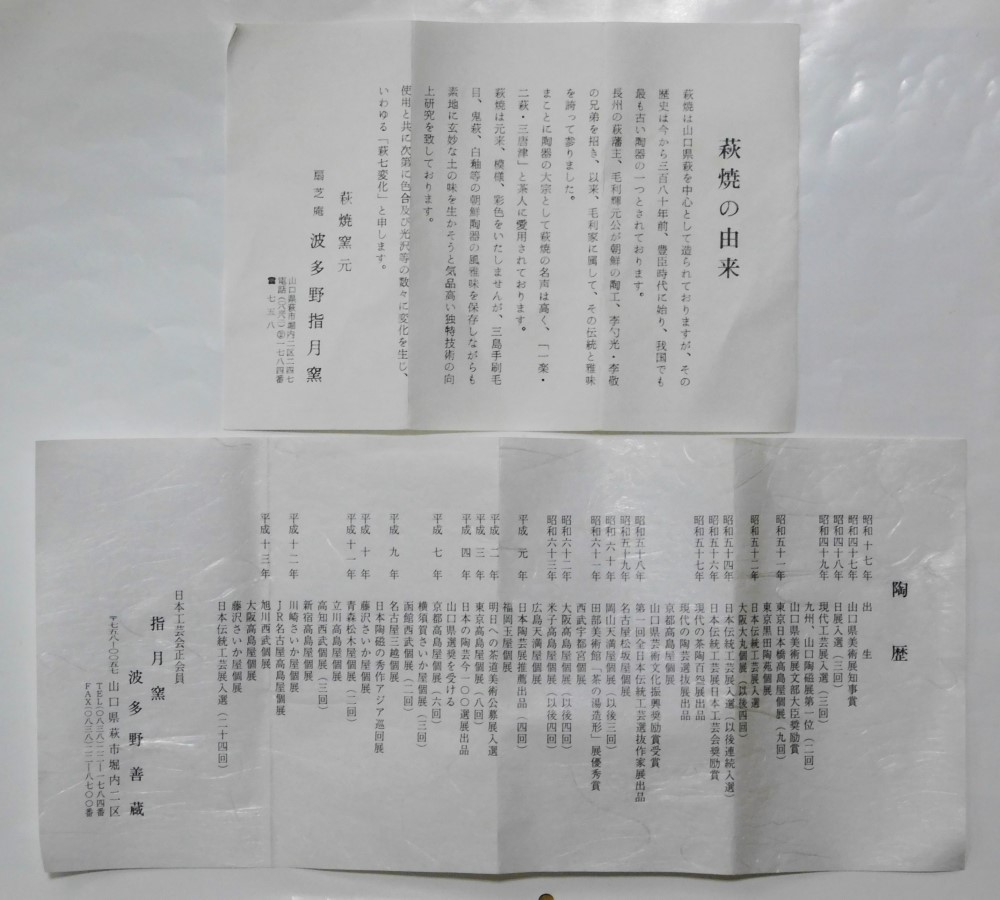 萩焼の由来
萩焼は山口県萩を中心として造られておりますが、その
歴史は今から三百八十年前、豊臣時代に始り、我国でも
最も古い陶器の一つとされております。
長州の萩藩主、毛利輝元公が朝鮮の陶工、李勺光・李敬
の兄弟を招き、以来、毛利家に属して、その伝統と雅味
を誇って参りました。
まことに陶器の大宗として萩焼の名声は高く、「一楽・
二萩・三唐津」と茶人に愛用されております。
萩焼は元来、模様、彩色をいたしませんが、三島手刷毛
目、鬼萩、白釉等の朝鮮陶器の風雅味を保存しながらも
素地に玄妙な土の味を生かそうと気品高い独特技術の向
上研究を致しております。
使用と共に次第に色合及び光沢等の数々に変化を生じ、
いわゆる「萩七変化」と申します。
萩焼窯元
扇芝庵 波多野指月窯
山口県萩市堀内二区二四七
電話(〇八三八二)②一七八四番
☎七五八
陶歴
昭和十七年 出生
昭和四十七年 山口県美術展知事賞
昭和四十八年 日展入選(三回)
昭和四十九年 現代工芸展入選(三回)
九州、山口陶磁展第一位(二回)
山口県美術展文部大臣奨励賞
昭和五十一年 東京日本橋高島屋個展(九回)
東京黒田陶苑個展
昭和五十二年 日本伝統工芸展入選
大阪大丸個展(以後四回)
昭和五十四年 日本伝統工芸展入選(以後連続入選)
昭和五十六年 日本伝統工芸展日本工芸会奨励賞
昭和五十七年 現代の茶陶百碗展出品
現代の陶芸選抜展出品
京都高島屋個展
山口県芸術文化振興奨励賞受賞
昭和五十八年 第一回全日本伝統工芸選抜作家展出品
昭和五十九年 名古屋松坂屋個展
昭和六十年 岡山天満屋個展(以後三回)
昭和六十一年 田部美術館「茶の湯造形」展優秀賞
西武宇都宮個展
昭和六十二年 大阪高島屋個展(以後四回)
昭和六十三年 米子高島屋個展(以後四回)
広島天満屋個展
平成元年 日本陶芸展推薦出品(四回)
福岡玉屋個展
平成二年 明日への茶道美術公募展入選
平成三年 東京高島屋個展(八回)
平成四年 日本の陶芸今一〇〇選展出品
山口県選奨を受ける
平成七年 京都高島屋個展(六回)
横須賀さいか屋個展(三回)
函館西武個展(二回)
平成九年 名古屋三越個展
日本陶磁の秀作アジア巡回展
平成十年 藤沢さいか屋個展
平成十一年 青森松木屋個展(二回)
立川高島屋個展
高知西武個展(三回)
新宿高島屋個展
平成十二年 川崎さいか屋個展
JR名古屋高島屋個展
平成十三年 旭川西武個展
大阪高島屋個展
藤沢さいか屋個展
日本伝統工芸展入選(二十四回)
日本工芸会正会員
指月窯
波多野善蔵
〒七五八-〇〇五七 山口県萩市堀内二区
TEL〇八三八-二二-一七八四番
FAX〇八三八-二二-八七〇〇番